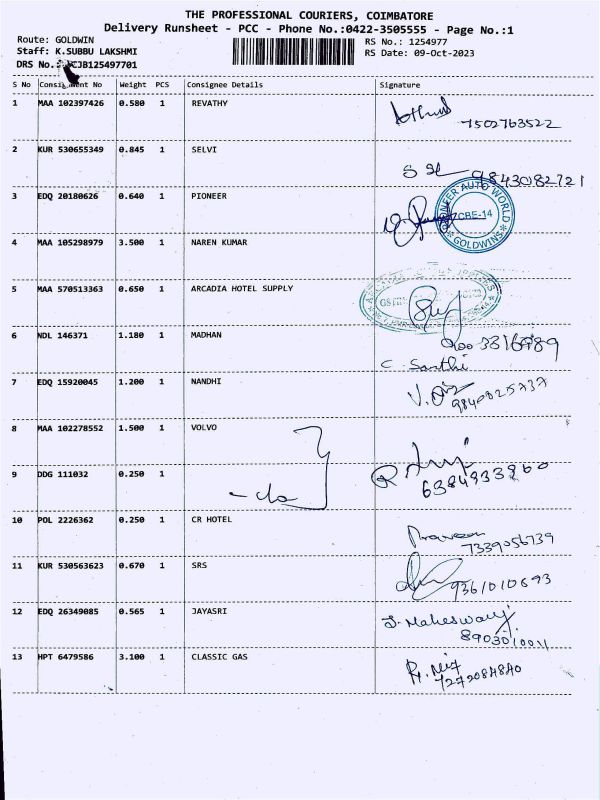 THE PROFESSIONAL COURIERS, COIMBATORE
Delivery Runsheet - PCC - Phone No.:0422-3505555 - Page No.:1
Route: GOLDWIN RS No.: 1254977
Staff: K.SUBBU LAKSHMI RS Date: 09-Oct-2023
DRS No.: CJB125497701
S No Consignment No Weight PCS Consignee Details Signature
1 MAA 102397426 0.580 1 REVATHY
7502763522
2 KUR 530655349 0.845 1 SELVI
9843082721
3 EDQ 20180626 0.640 1 PIONEER
PIONEER AUTO WORLD
CBE-14
GOLDWINS
4 MAA 105298979 3.500 1 NAREN KUMAR
5 MAA 570513363 0.650 1 ARCADIA HOTEL SUPPLY
6 NDL 146371 1.180 1 MADHAN
C. Santhi
7 EDQ 15920045 1.200 1 NANDHI
8 MAA 102278552 1.500 1 VOLVO
9 DDG 111032 0.250 1
- do
6384933960
10 POL 2226362 0.250 1 CR HOTEL
Praveen
7339056739
11 KUR 530563623 0.670 1 SRS
9361010693
12 EDQ 26349085 0.565 1 JAYASRI
J. Maheswari
8903010011
13 HPT 6479586 3.100 1 CLASSIC GAS
7272084840